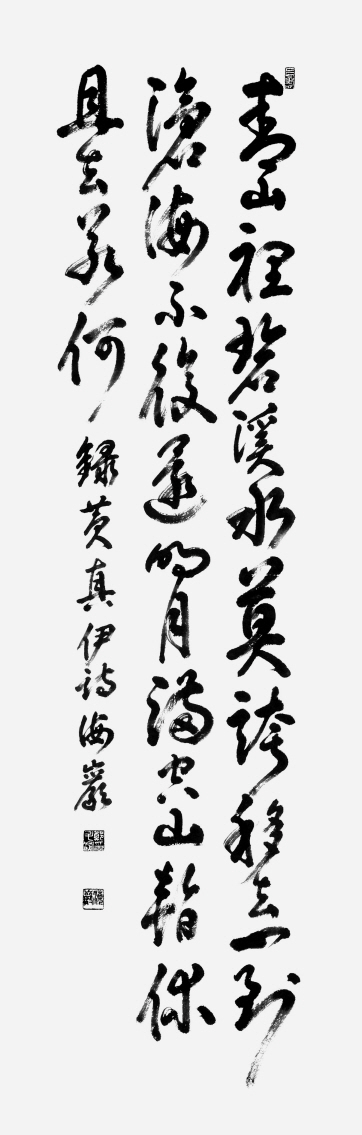 青山裡碧溪水莫誇移去一到
滄海不復還明月滿空山暫休
且去若何 錄黃真伊詩海巖